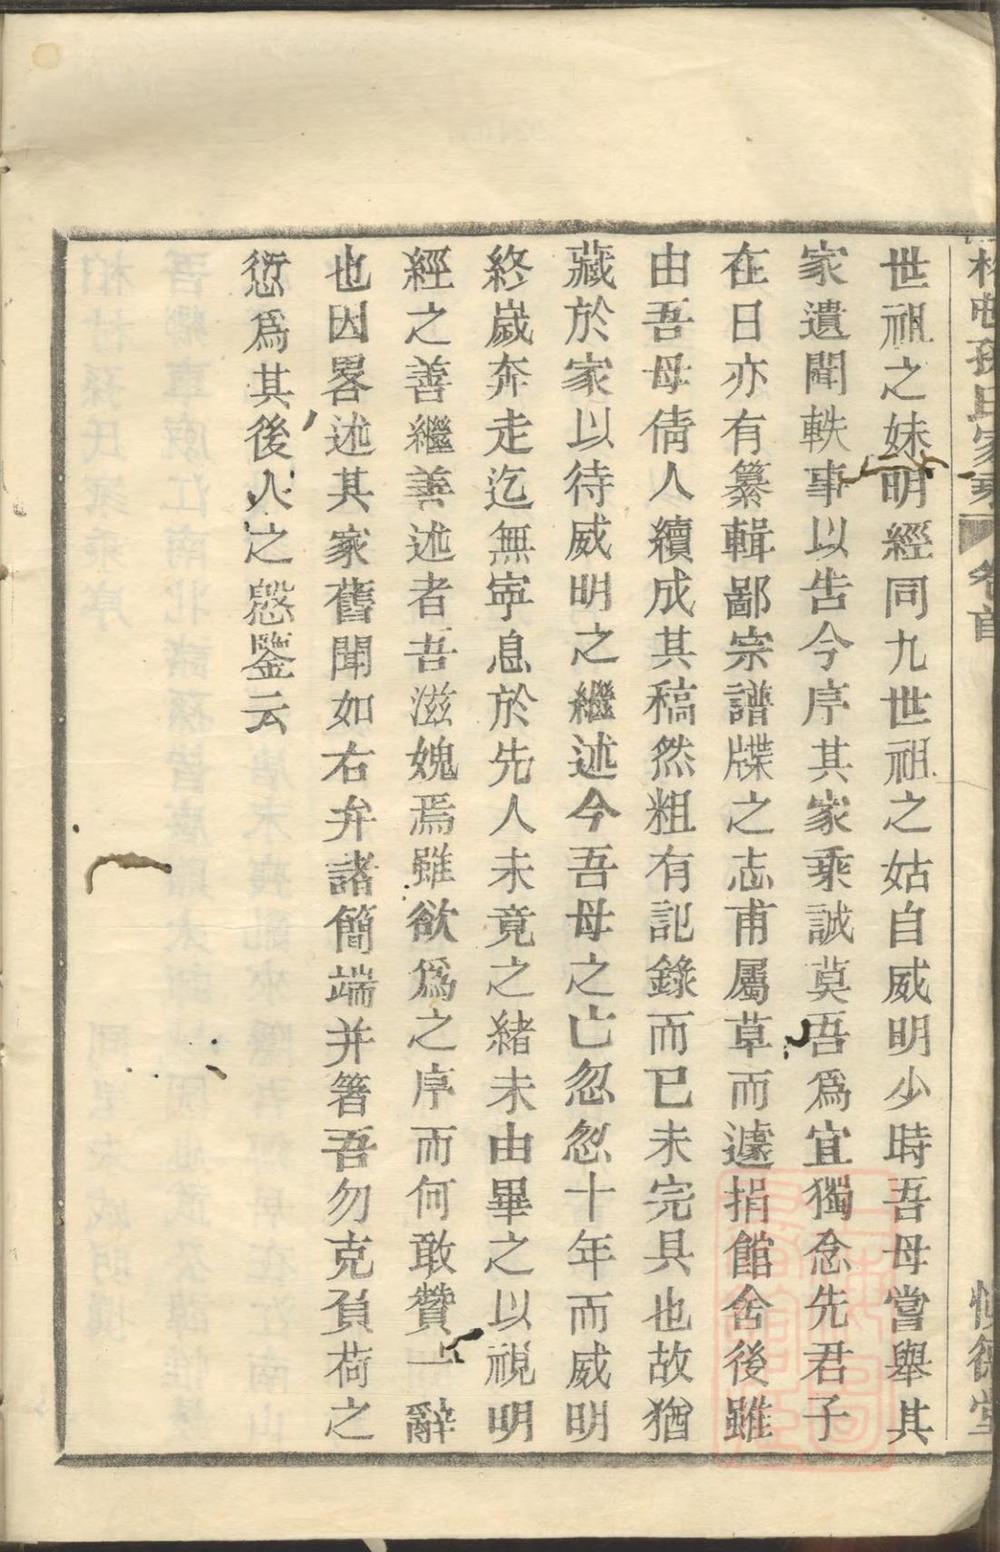 孫氏家乘 卷首 堂
世祖之妹明經同九世祖之姑自威明少時吾母嘗舉其
家遺聞軼事以告今序其家乘誠莫吾爲宜獨念先君子
在日亦有纂輯鄙宗譜牒之志甫屬草而遽捐館舍後雖
由吾母倩人續成其稿然粗有記錄而已未完具也故猶
藏於家以待威明之繼述今吾母之亡忽忽十年而威明
終歲奔走迄無寧息於先人未竟之緒未由畢之以視明
經之善繼善述者吾滋媿焉雖欲爲之序而何敢贊一辭
也因畧述其家舊聞如右弁諸簡端并箸吾勿克負荷之
愆爲其後人之慇鑒云